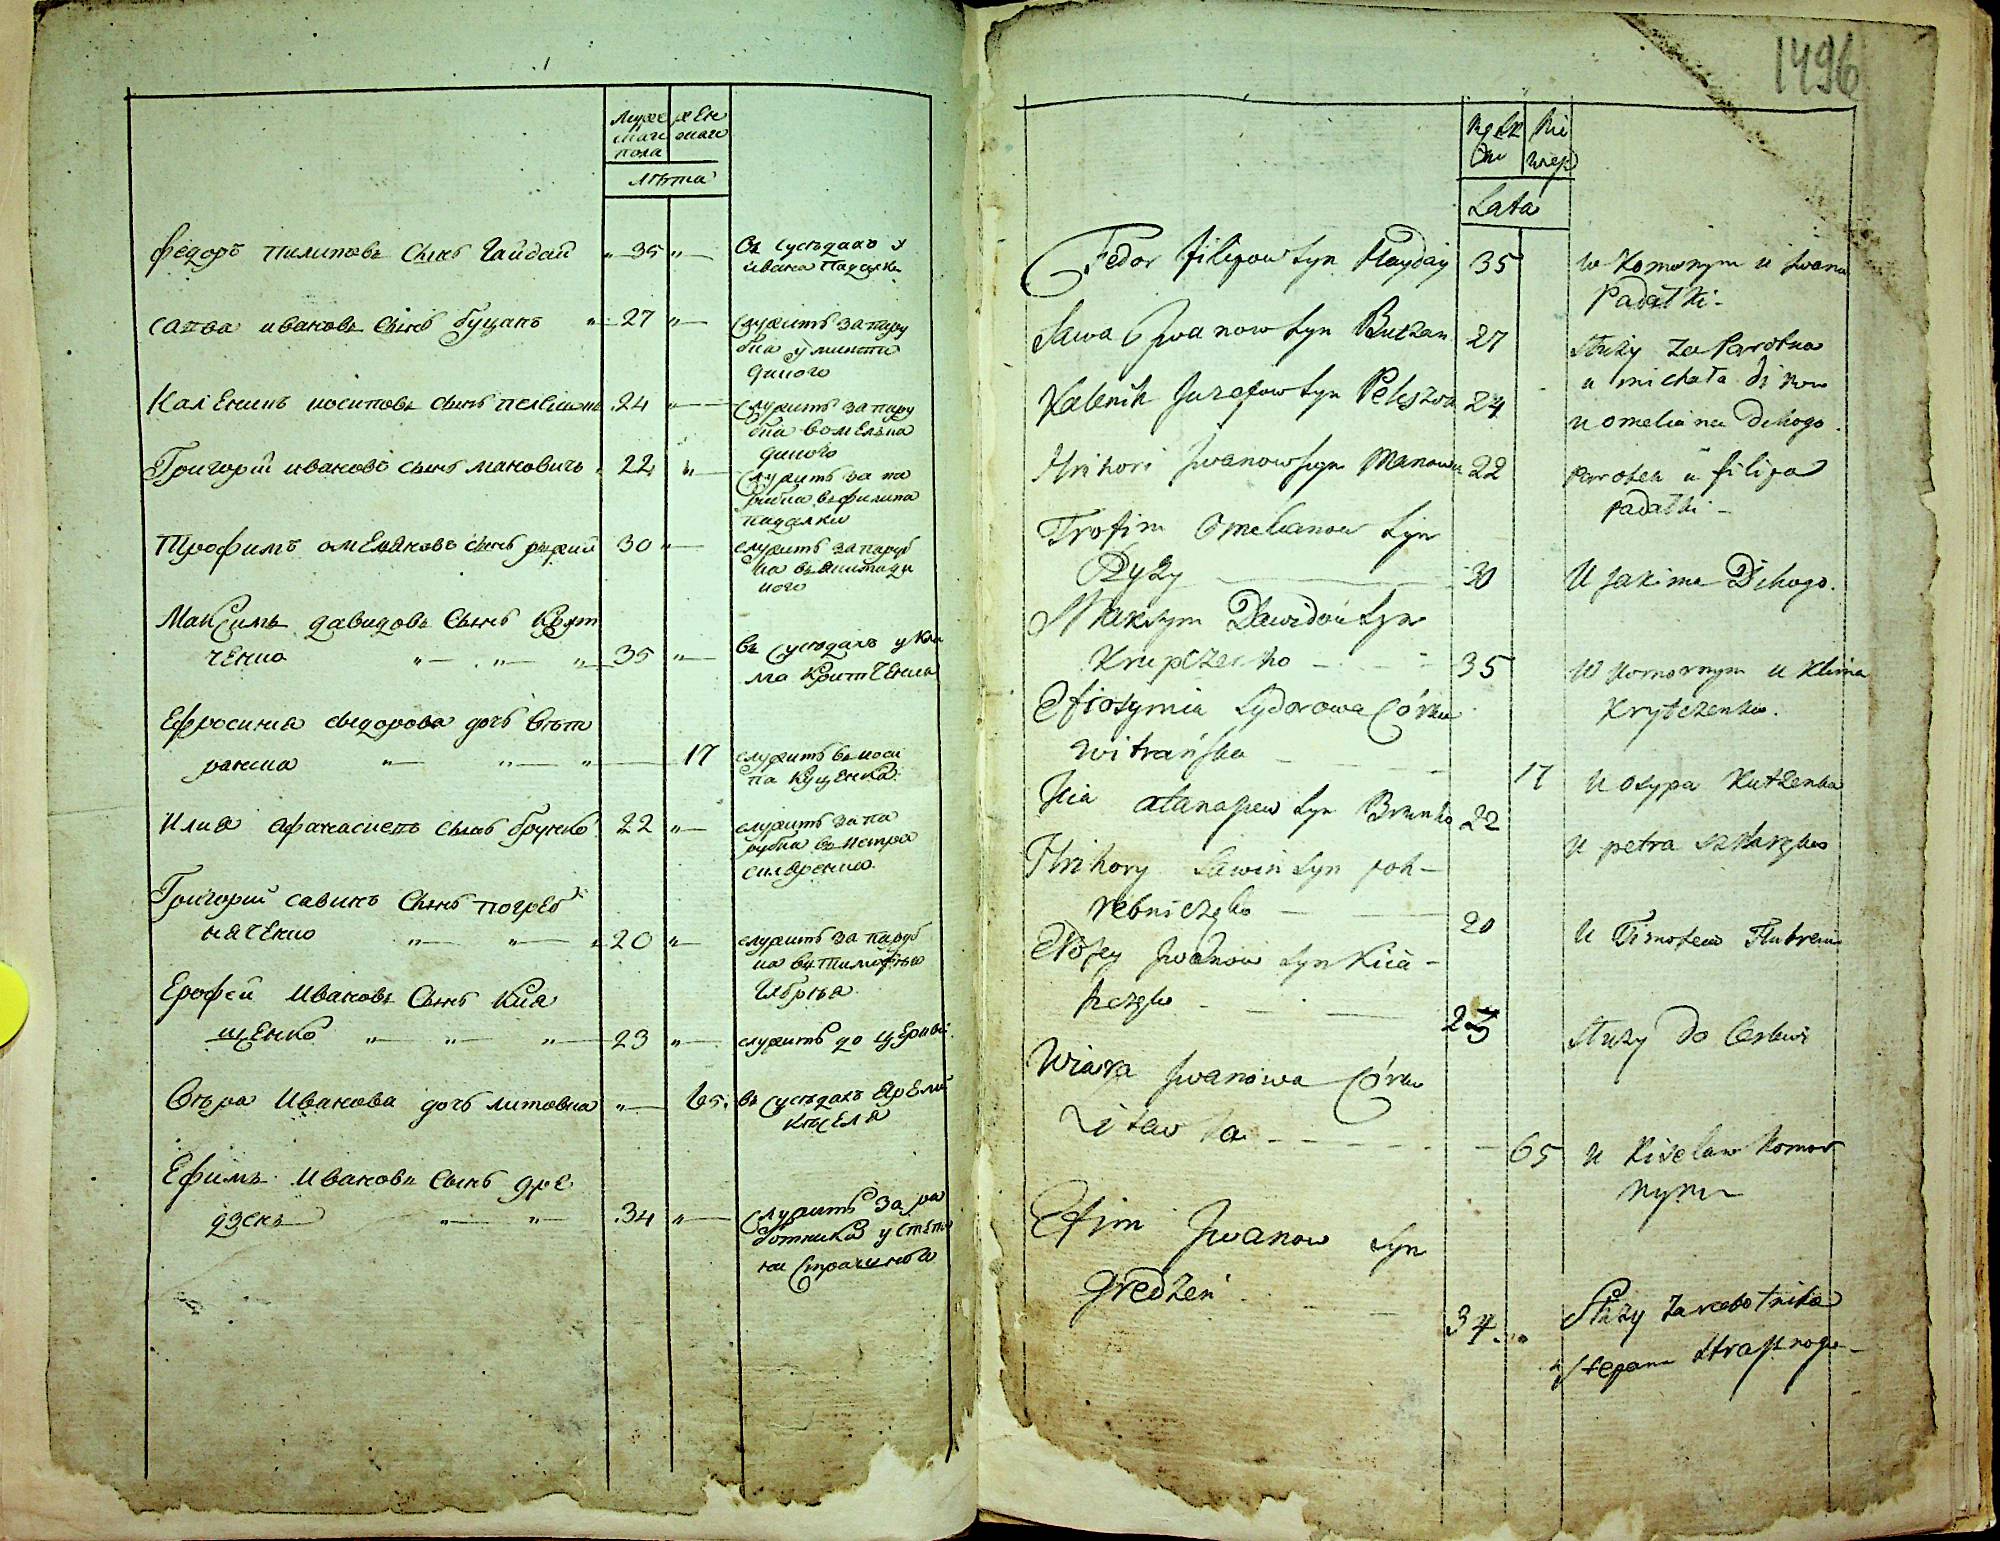 муже жен
ска ска
пола
лѣта
Федоръ пилиповъ сынъ Гайдай 35 въ сусѣдахъ у
ивана Падалки
савва ивановъ сынъ буцанъ 27 служитъ за пару
бка у
дикого
Каленикъ иосиповъ сынъ 24 служитъ за пару
бка вомеляна
дикого
Григорий ивановъ сынъ мановичь 22 служитъ за па
рубка въ филипа
падалки
Трофимъ омеляновъ сынъ рыжий 30 служитъ за паруб
ка въ
кого
Максимъ давидовъ сынъ Круп
ченко 35 въ сусѣдахъ у Кли
ма Критченка
Ефросиния сидорова дочь Вѣт
ранка 17 служитъ въ йоси
па Куценка
Илия афанасиевъ сынъ брунко 22 служитъ за па
рубка въ петра
Григорий савинъ сынъ погреб
няченко 20 служитъ за паруб
ка въ тимофѣя
Ерофей Ивановъ сынъ Кия
щенко 23 служитъ до церкви
Вѣра Иванова дочь литовка 65 въ сусѣдахъ
Киселя
Ефимъ Ивановъ сынъ дре
дзень 34 служитъ за ра
ботника у степа
на Страшного
1496
Męzk Nie
Ow wiep
Lata
Fedor filipow Syn Hayday 35 w Komornym u Jwana
Padałki
Sawa Jwanow Syn Butzan 27 Służy za Parobka
u michała dikow
Kalenik Juzefow Syn Peleszun 24 u omeliana Dikogo
Hrihori Jwanow syn Manowicz 22 Parobek u filipa
Padałki
Trofim Omelianow Syn
Ryży 30 U Jakima Dikogo
Maksym Dawidow Syn
Krupczenko 35 W Komornym u Klima
Krytczenka
Efrosymia Sydorowa Córka
Witrańska 17 U osypa Kutzenka
Jlia atanasiew Syn Brunko 22 U petra
Hrihory Sawin Syn poh-
rebniczęko 20 U Timofeia
Erofey Jwanow Syn Kiia-
szczęko 23 Służy do Cerkwi
Wiara Jwanowa Córka
Litawka 65 U Kiselaw Komor
nym
Efim Jwanow Syn
Gredzeń 34 Służy za rabotnika
u stepana Strasznogo